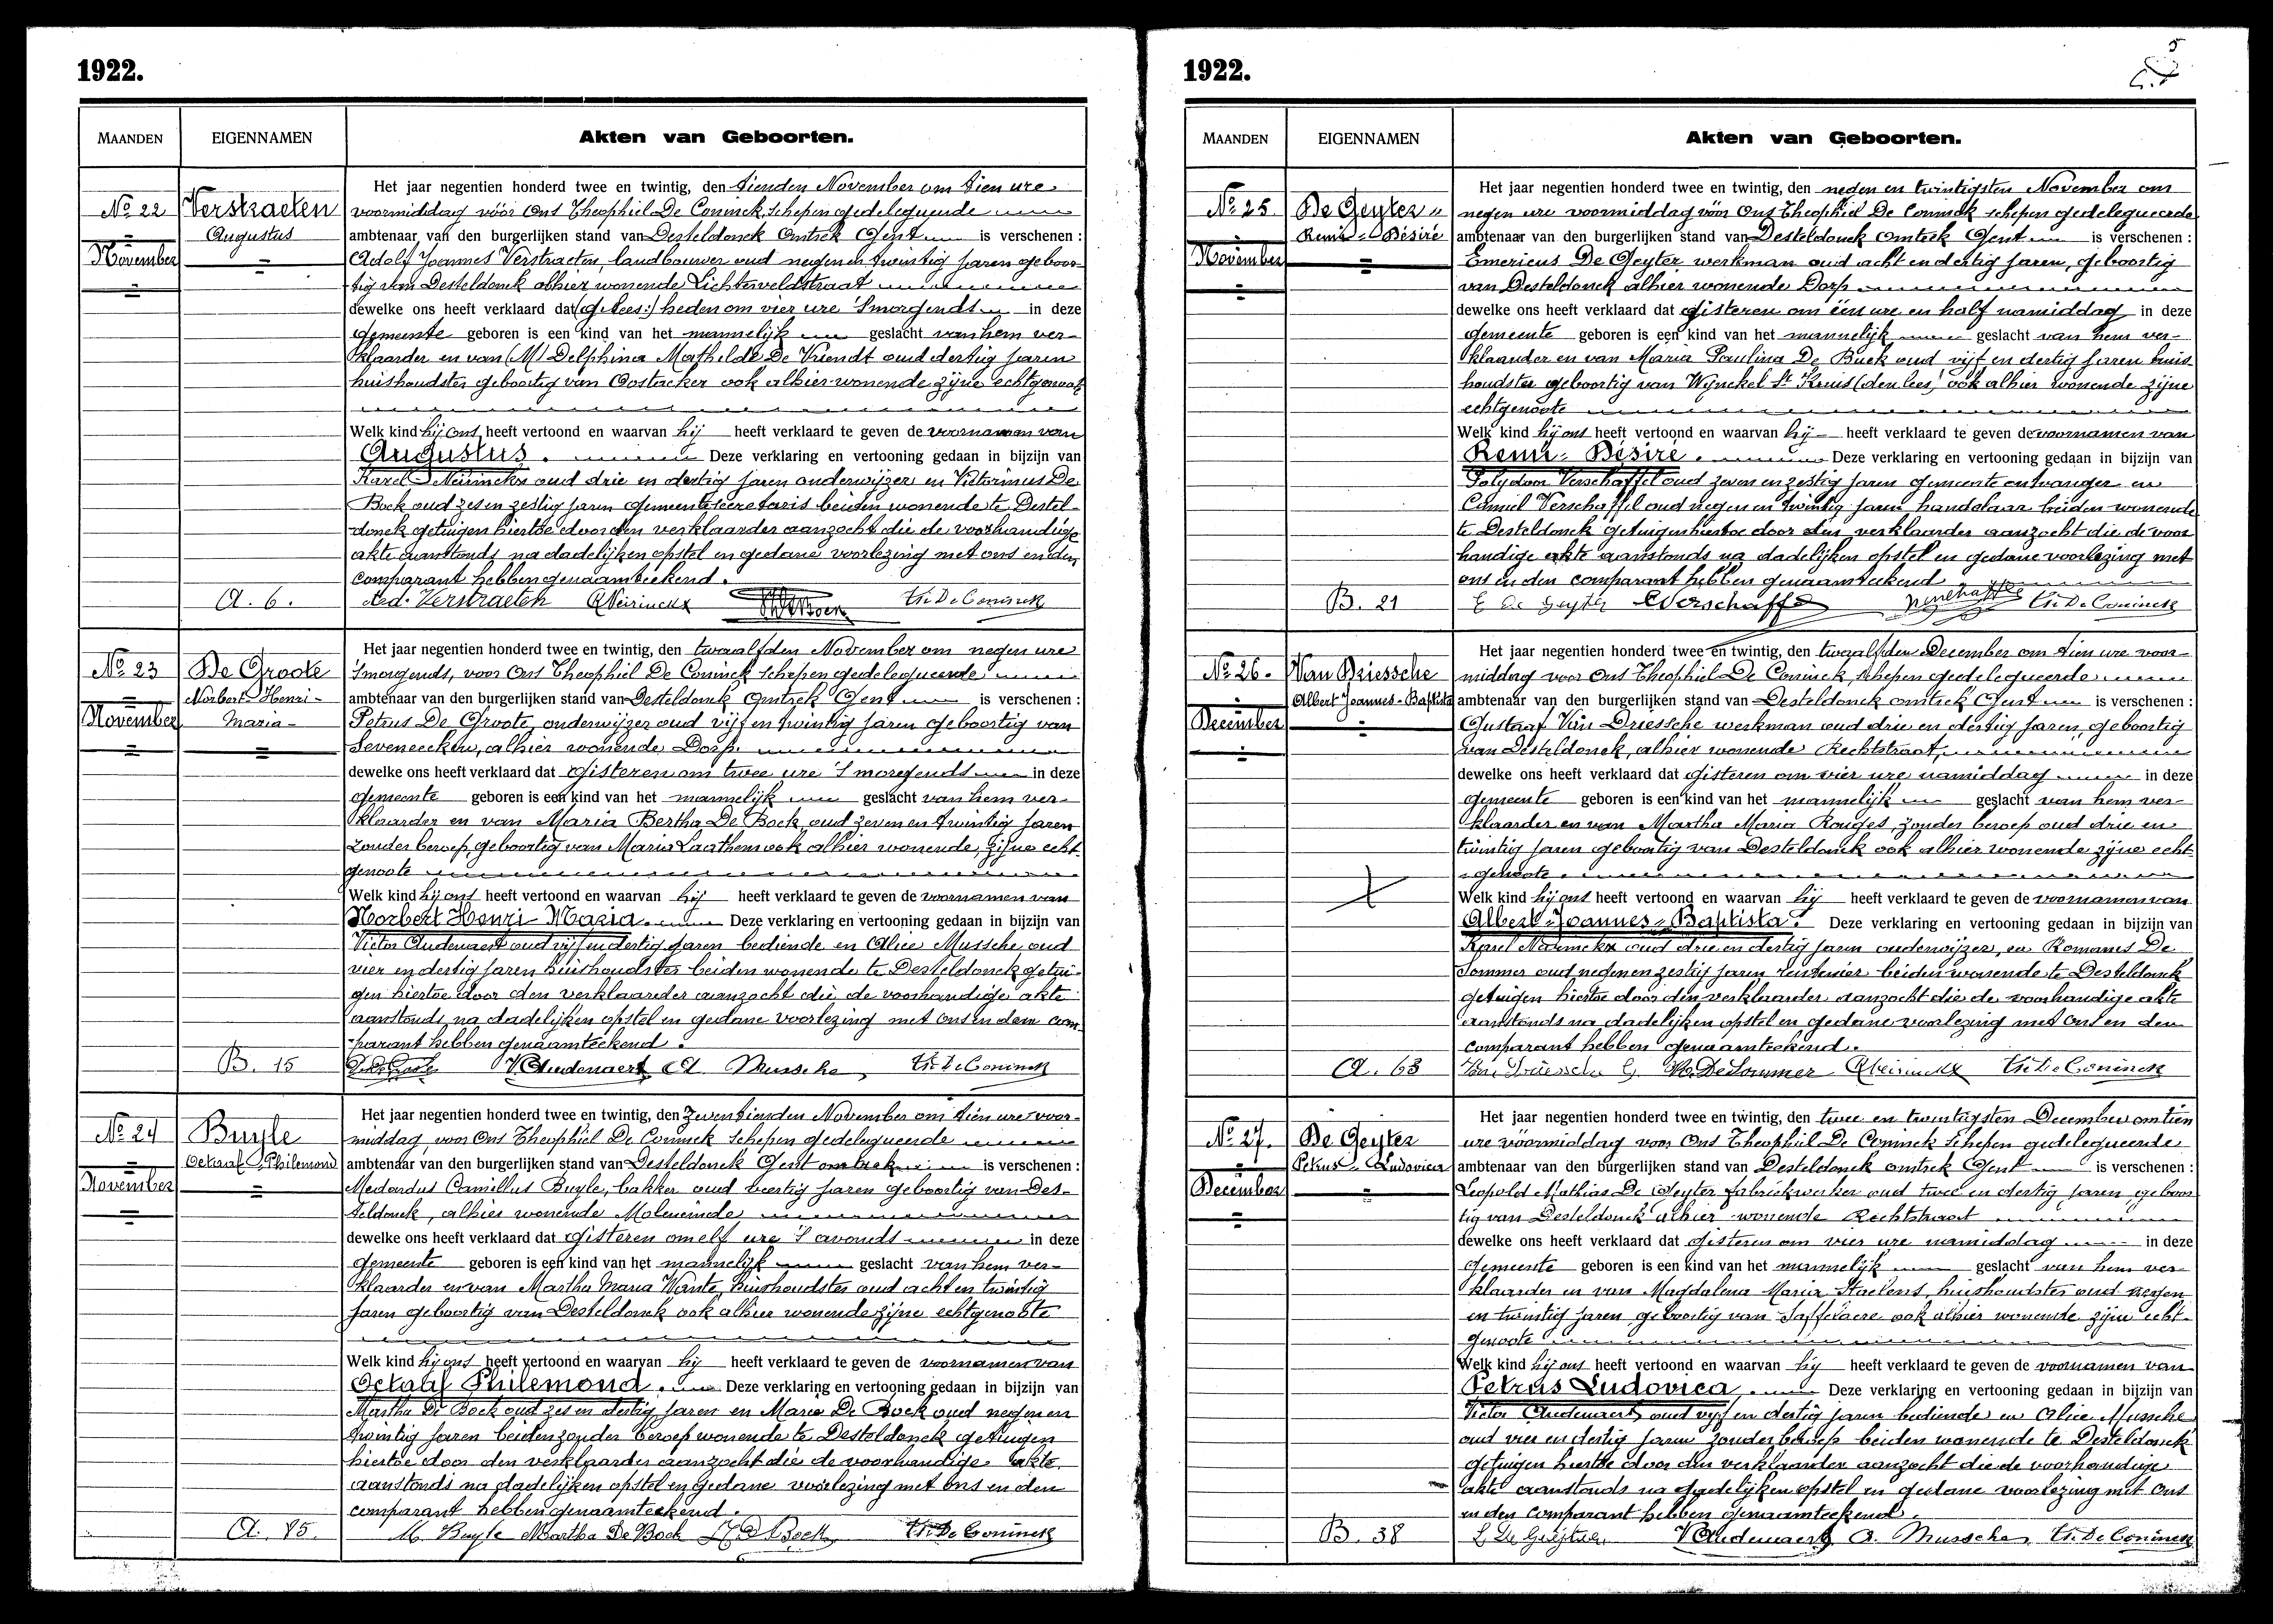 1922.
MAANDEN
EIGENNAMEN
Akten van Geboorten.
No 22
November
Verstraeten
Augustus
Het jaar negentien honderd twee en twintig, den tienden November om tien ure
voormiddag vóór Ons Theophiel De Coninck, schepen gedelegueerde
ambtenaar van den burgerlijken stand van Desteldonck Omtrek Gent is verschenen :
Adolf Joannes Verstraeten, landbouwer oud negen en twintig jaren geboor-
tig van Desteldonck alhier wonende Lichterveldstraat
dewelke ons heeft verklaard dat (gelees:) heden om vier ure 's morgends in deze
gemeente geboren is een kind van het mannelijk geslacht van hem ver-
klaarder en van (M) Delphina Mathilde De Vriendt oud dertig jaren
huishoudster geboortig van Oostacker ook alhier wonende zijne echtgenoot
Welk kind hij ons heeft vertoond en waarvan hij heeft verklaard te geven de voornamen van
Augustus. Deze verklaring en vertooning gedaan in bijzijn van
Karel Neirinckx oud drie en dertig jaren onderwijzer en Victorinus De
Bock oud zes en zestig jaren gemeentesecretaris beiden wonende te Destel-
donck getuigen hiertoe door den verklaarder aanzocht die de voorhandige
akte aanstonds na dadelijken opstel en gedane voorlezing met ons en den
comparant hebben genaamteekend.
A. 6.
Ad. Verstraeten KNeirinckx VDeBock Th. De Coninck
No 23
November
De Groote
Norbert-Henri-
Maria-
Het jaar negentien honderd twee en twintig, den twaalfden November om negen ure
's morgends, voor Ons Theophiel De Coninck schepen gedelegueerde
ambtenaar van den burgerlijken stand van Desteldonck Omtrek Gent is verschenen :
Petrus De Groote, onderwijzer oud vijf en twintig jaren geboortig van
Seveneecken, alhier wonende Dorp.
dewelke ons heeft verklaard dat gisteren om twee ure 's morgends in deze
gemeente geboren is een kind van het mannelijk geslacht van hem ver-
klaarder en van Maria Bertha De Bock oud zeven en twintig jaren
zonder beroep, geboortig van Maria Laathem ook alhier wonende, zijne echt-
genoote
Welk kind hij ons heeft vertoond en waarvan hij heeft verklaard te geven de voornamen van
Norbert Henri-Maria. Deze verklaring en vertooning gedaan in bijzijn van
Victor Audenaert oud vijf en dertig jaren bediende en Alice Mussche oud
vier en dertig jaren huishoudster beiden wonende te Desteldonck getui-
gen hiertoe door den verklaarder aanzocht die de voorhandige akte
aanstonds na dadelijken opstel en gedane voorlezing met ons en den com-
parant hebben genaamteekend.
B. 15
VAudenaert A Mussche Th. De Coninck
No 24
November
Buyle
Octaaf-Philemond
Het jaar negentien honderd twee en twintig, den zeventienden November om tien ure voor-
middag, voor Ons Theophiel De Coninck schepen gedelegueerde
ambtenaar van den burgerlijken stand van Desteldonck Gent omtrek is verschenen :
Medardus Camillus Buyle, bakker oud veertig jaren geboortig van Des-
teldonck, alhier wonende Moleneinde
dewelke ons heeft verklaard dat gisteren om elf ure 's avonds in deze
gemeente geboren is een kind van het mannelijk geslacht van hem ver-
klaarder en van Martha Maria Wante, huishoudster oud acht en twintig
jaren geboortig van Desteldonck ook alhier wonende zijne echtgenoote
Welk kind hij ons heeft vertoond en waarvan hij heeft verklaard te geven de voornamen van
Octaaf Philemond. Deze verklaring en vertooning gedaan in bijzijn van
Martha De Bock oud zes en dertig jaren en Maria De Bock oud negen en
twintig jaren beiden zonder beroep wonende te Desteldonck getuigen
hiertoe door den verklaarder aanzocht die de voorhandige akte
aanstonds na dadelijken opstel en gedane voorlezing met ons en den
comparant hebben genaamteekend.
A. 85.
M. Buyle Martha De Bock De Bock Th. De Coninck
1922.
5
MAANDEN
EIGENNAMEN
Akten van Geboorten.
No 25.
November
De Geyter
Remi-Désiré
Het jaar negentien honderd twee en twintig, den negen en twintigsten November om
negen ure voormiddag vóór Ons Theophiel De Coninck schepen gedelegueerde
ambtenaar van den burgerlijken stand van Desteldonck omtrek Gent is verschenen :
Emericus De Geyter werkman oud acht en dertig jaren, geboortig
van Desteldonck alhier wonende Dorp
dewelke ons heeft verklaard dat gisteren om één ure en half namiddag in deze
gemeente geboren is een kind van het mannelijk geslacht van hem ver-
klaarder en van Maria Paulina De Buck oud vijf en dertig jaren huis-
houdster geboortig van Wynckel St Kruis (den lees) ook alhier wonende zijne
echtgenoote
Welk kind hij ons heeft vertoond en waarvan hij heeft verklaard te geven de voornamen van
Remi-Désiré. Deze verklaring en vertooning gedaan in bijzijn van
Polydoor Verschaffel oud zeven en zestig jaren gemeente ontvanger en
Camiel Verschaffel oud negen en twintig jaren handelaar beiden wonende
te Desteldonck getuigen hiertoe door den verklaarder aanzocht die de voor-
handige akte aanstonds na dadelijken opstel en gedane voorlezing met
ons en den comparant hebben genaamteekend
B. 21
E De Geyter CVerschaffel Th. De Coninck
No 26.
December
Van Driessche
Albert Joannes-Baptista
Het jaar negentien honderd twee en twintig, den twaalfden December om tien ure voor-
middag voor Ons Theophiel De Coninck, schepen gedelegueerde
ambtenaar van den burgerlijken stand van Desteldonck omtrek Gent is verschenen :
Gustaaf Van Driessche werkman oud drie en dertig jaren, geboortig
van Desteldonck, alhier wonende Rechtstraat,
dewelke ons heeft verklaard dat gisteren om vier ure namiddag in deze
gemeente geboren is een kind van het mannelijk geslacht van hem ver-
klaarder en van Martha Maria Rouges, zonder beroep oud drie en
twintig jaren geboortig van Desteldonck ook alhier wonende zijne echt-
genoote.
Welk kind hij ons heeft vertoond en waarvan hij heeft verklaard te geven de voornamen van
Albert-Joannes-Baptista. Deze verklaring en vertooning gedaan in bijzijn van
Karel Neirinckx oud drie en dertig jaren onderwijzer, en Romanus De
Sommer oud negen en zestig jaren rentenier beiden wonende te Desteldonck
getuigen hiertoe door den verklaarder aanzocht die de voorhandige akte
aanstonds na dadelijken opstel en gedane voorlezing met ons en den
comparant hebben genaamteekend.
A. 63
Van Driessche G. De Sommer KNeirinckx Th. De Coninck
No 27.
December
De Geyter
Petrus-Ludovica
Het jaar negentien honderd twee en twintig, den twee en twintigsten December om tien
ure voormiddag voor Ons Theophiel De Coninck schepen gedelegueerde
ambtenaar van den burgerlijken stand van Desteldonck omtrek Gent is verschenen :
Leopold Mathias De Geyter fabriekwerker oud twee en dertig jaren, geboor-
tig van Desteldonck alhier wonende Rechtstraat
dewelke ons heeft verklaard dat gisteren om vier ure namiddag in deze
gemeente geboren is een kind van het mannelijk geslacht van hem ver-
klaarder en van Magdalena Maria Staelens, huishoudster oud negen
en twintig jaren geboortig van Saffelaere ook alhier wonende zijne echt-
genoote
Welk kind hij ons heeft vertoond en waarvan hij heeft verklaard te geven de voornamen van
Petrus Ludovica. Deze verklaring en vertooning gedaan in bijzijn van
Victor Audenaert oud vijf en dertig jaren bediende en Alice Mussche
oud vier en dertig jaren zonder beroep beiden wonende te Desteldonck
getuigen hiertoe door den verklaarder aanzocht die de voorhandige
akte aanstonds na dadelijken opstel en gedane voorlezing met ons
en den comparant hebben genaamteekend.
B. 38
L De Geyter VAudenaert A. Mussche Th. De Coninck